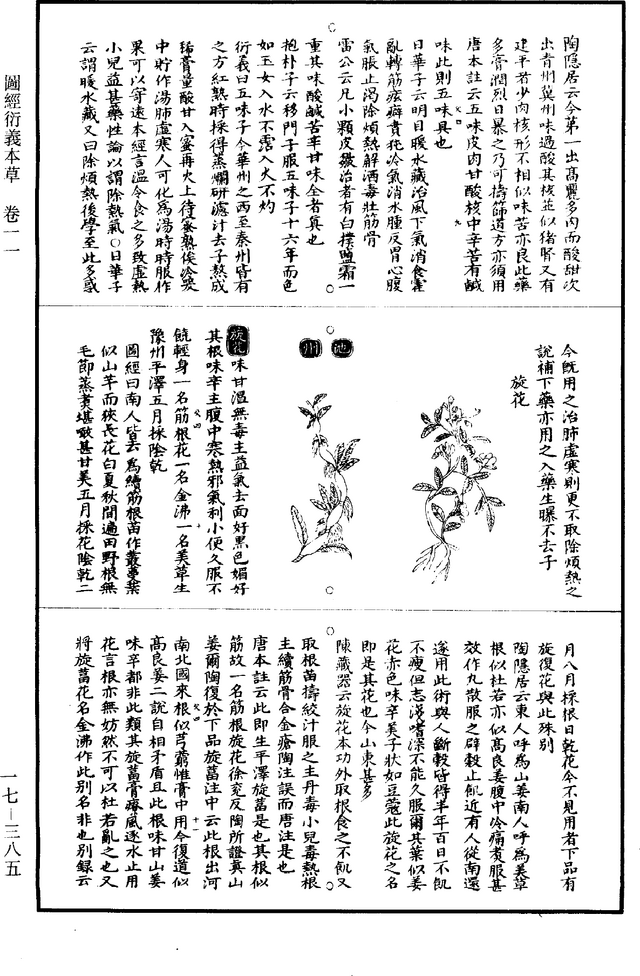 圖經衍義本草 卷一一
陶隱居云今第一出高麗多肉而酸甜次
出青州冀州味過酸其核並似猪腎又有
建平者少肉核形不相似味苦亦良此藥
多膏潤烈日暴之乃可擣篩道方亦須用
唐本註云五味皮肉甘酸核中辛苦有鹹
味此則五味具也
日華子云明目暖水藏治風下氣消食霍
亂轉筋痃癖賁㹠冷氣消水腫反胃心腹
氣脹止渴除煩熱解酒毒壯筋骨
雷公云凡小顆皮皺泡者有白撲鹽霜一
重其味酸鹹苦辛甘味全者真也
抱朴子云移門子服五味子十六年而色
如玉女入水不霑入火不灼
衍義曰五味子今華州之西至秦州皆有
之方紅熟時採得蒸爛研濾汁去子熬成
稀膏量酸甘入蜜再火上待蜜熟俟冷器
中貯作湯肺虛寒人可化為湯時時服作
果可以寄遠本經言溫今食之多致虛熱
小兒益甚藥性論以謂除熱氣○日華子
云謂暖水藏又曰除煩熱後學至此多惑
今既用之治肺虛寒則更不取除煩熱之
說補下藥亦用之入藥生曝不去子
旋花
池
州
旋花味甘溫無毒主益氣去面䵟黑色媚好
其根味辛主腹中寒熱邪氣利小便久服不
飢輕身一名筋根花一名金沸一名美草生
豫州平澤五月採陰乾
圖經曰南人皆云為續筋根苗作叢蔓葉
似山芋而狹長花白夏秋間遍田野根無
毛節蒸煑堪噉甚甘美五月採花陰乾二
月八月採根日乾花今不見用者下品有
旋復花與此殊別
陶隱居云東人呼為山姜南人呼為美草
根似杜若亦似高良姜腹中冷痛煑服甚
效作丸散服之辟穀止飢近有人從南還
遂用此術與人斷穀皆得半年百日不飢
不瘦但志淺嗜深不能久服爾其葉似姜
花赤色味辛美子狀如豆蔻此旋花之名
即是其花也今山東甚多
陳藏器云旋花本功外取根食之不飢又
取根苗擣絞汁服之主丹毒小兒毒熱根
主續筋骨合金瘡陶注誤而唐注是也
唐本註云此即生平澤旋葍是也其根似
筋故一名筋根旋花徐兗反陶所證真山
姜爾陶復於下品旋葍注中云此根出河
南北國來根似芎藭惟膏中用今復道似
高良姜二說自相矛盾且此根味甘山姜
味辛都非此類其旋葍膏療風逐水止用
花言根亦無妨然不可以杜若亂之也又
將旋葍花名金沸作此別名非也別錄云
一七—三八五